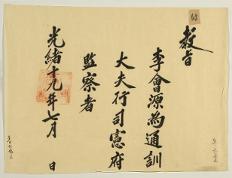 教旨
李會源為通訓
大夫行司憲府
監察者
光緒十九年七月 日